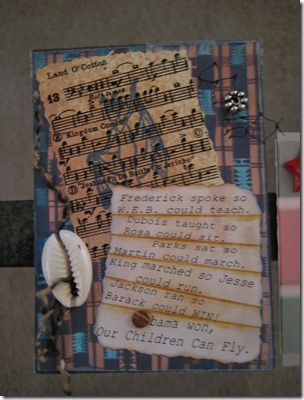 Land O'Cotton.
13
Kingdom Coming
Joshua Fit De Battle ob Jericho
Frederick spoke so
W.E.B. could teach.
Dubois taught so
Rosa could sit.
Parks sat so
Martin could march.
King marched so Jesse
could run.
Jackson ran so
Barack could WIN!
Obama won,
Our Children Can Fly.